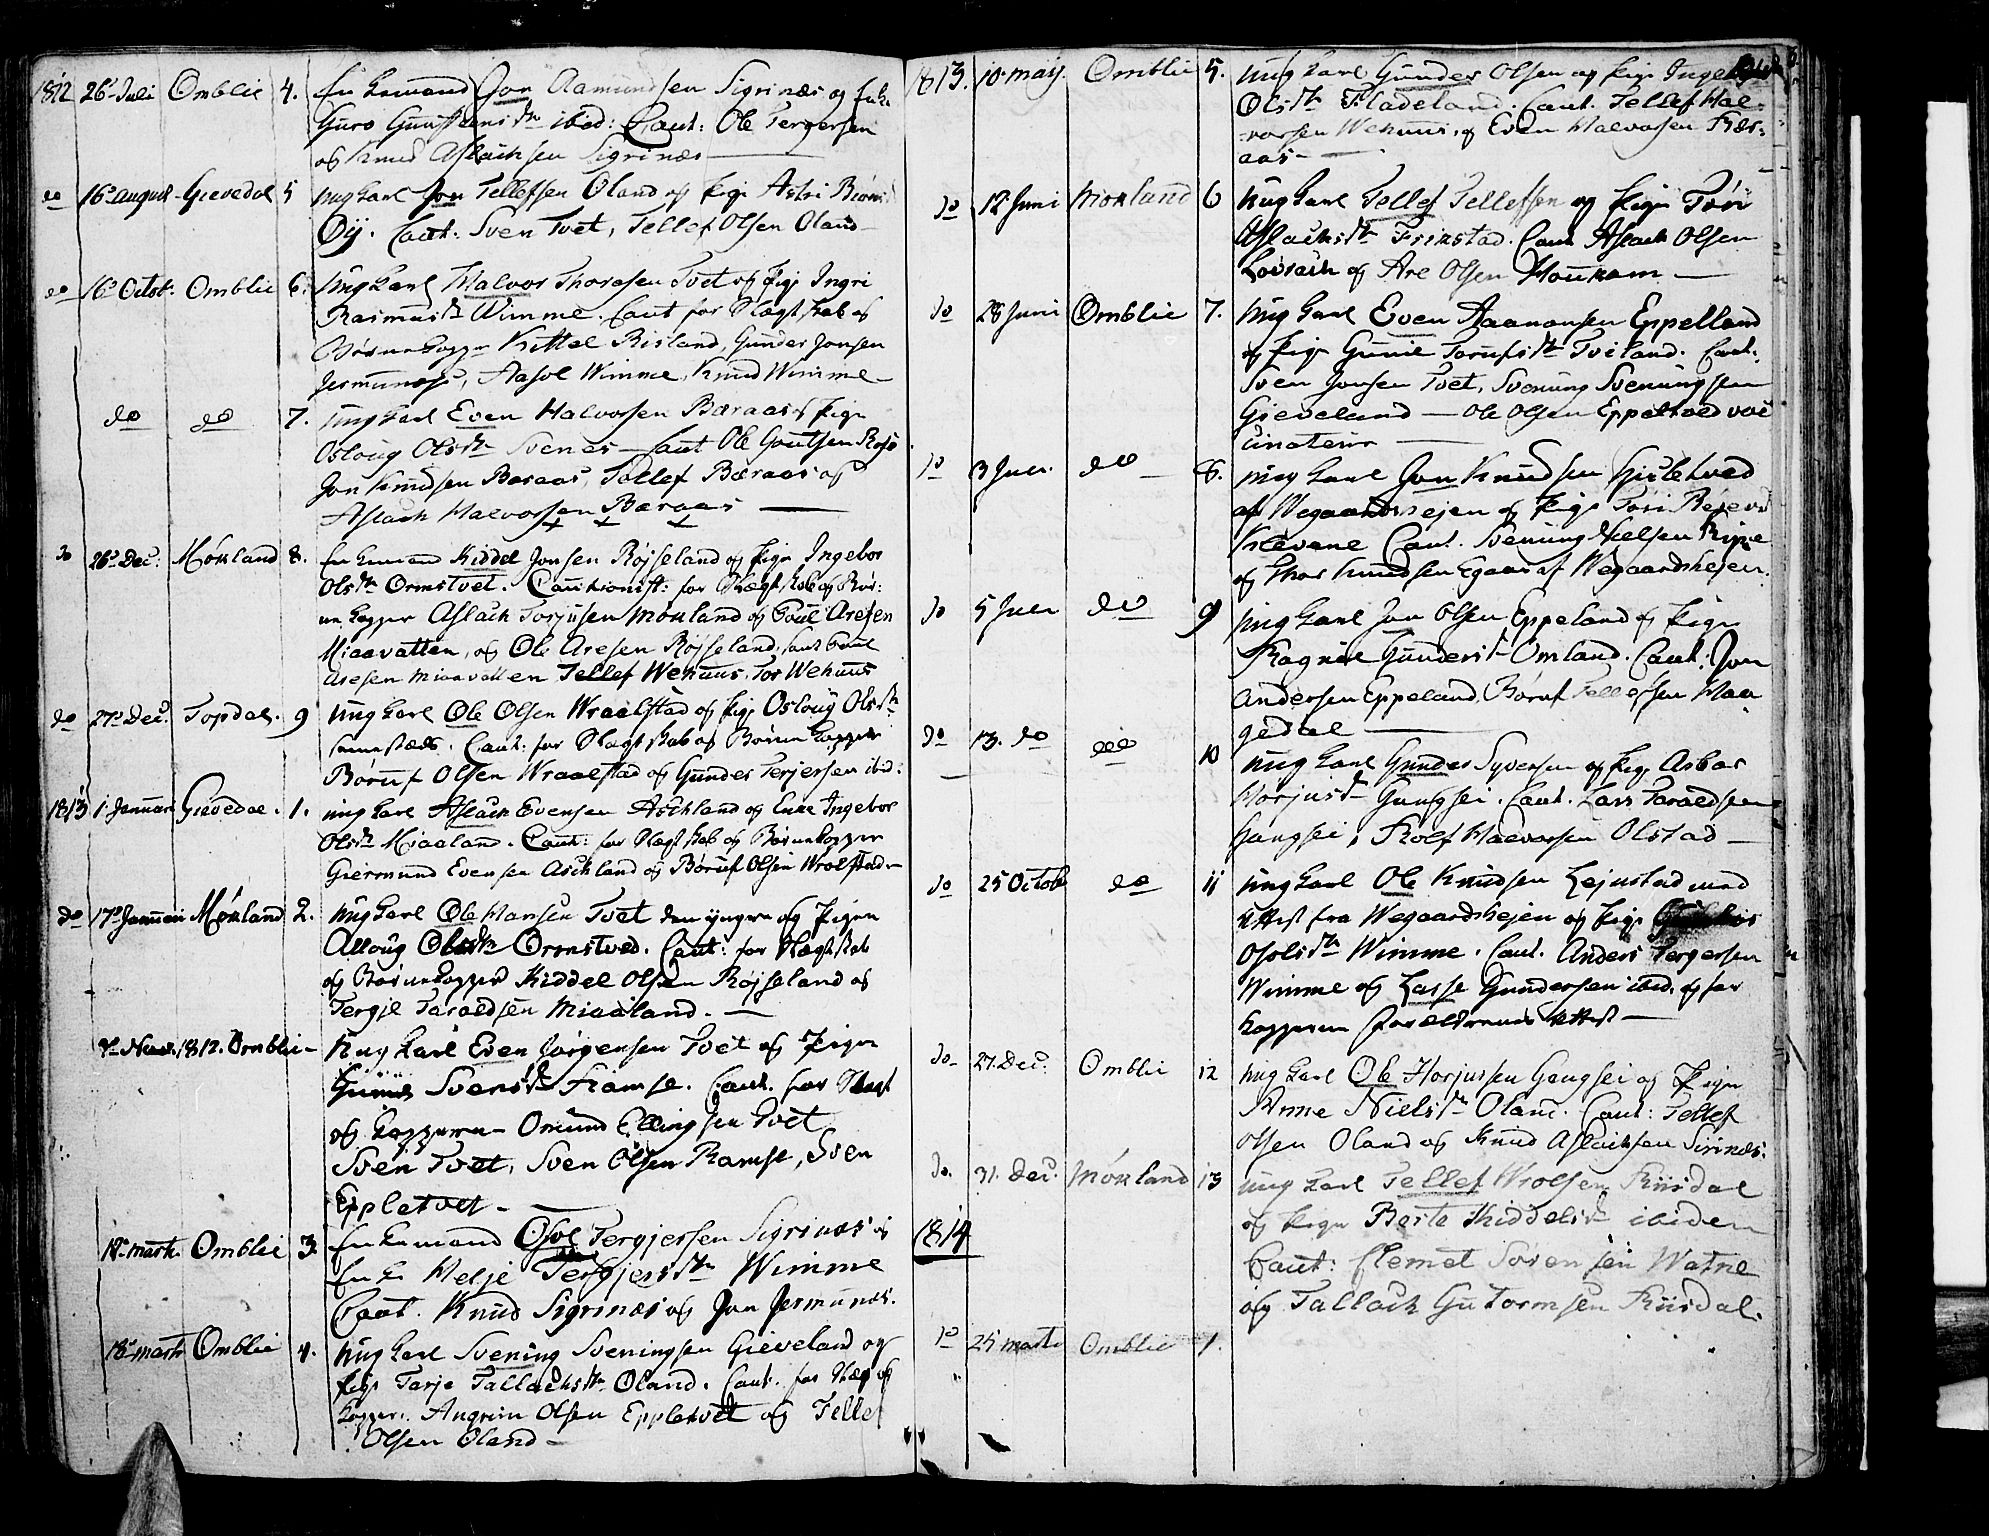 1812 26 Juli Omblie 4. Enkemand Jon Aamundsen Sigrinæs og Enke
Guro Gunstensdtr ibid: Caut: Ole Tergersen
og Knud Aslachsen Sigrinæs
do 16 august Gievedal 5 ungkarl Jon Tellefsen Oland og pige Astri
Øÿ. Caut: Sven Tvet, Tellef Olsen Oland
do 16 Octob: Omblie 6. ungkarl Halvor Thoresen Tvet og pige Ingri
Rasmusdtr Wimme. Caut for Slægtskab og
Børnekopper Kittel Risland, Gunder Jonsen
Jermunæs, Aasol Wimme, Knud Wimme
do do 7. ungkarl Even Halvorsen Bæraas og pige
Osloug Olsdtr Svenes Caut Ole Goutsen
Jon Knudsen Baraas, Tellef Bæraas og
Aslach Halvorsen Bæraas
do 26 Dec: Mökland 8. Enkemand Kiddel Jonsen Röjseland og pige Ingebor
Olsdtr Ormstvet. Cautionist: for Slægtskab og Bör:
nekopper Aslach Torjusen Mökland og Poul Aresen
Miaavatten, og Ole Aresen Röjseland, samt Poul
Aresen Miaavatten Tellef Wehuus, Tor Wehuus
do 27 Dec. Topdal. 9 ungkarl Ole Olsen Wraalstad og pige Osloug Olsdtr
sammesteds. Caut: for Slægtskab og Börnekopper
Böruf Olsen Wraalstad og Gunder Terjersen ibid.
1813 1 Januari Gievedal. 1. ungkarl Aslach Evensen Aschland og Enke Ingebor
Olsdtr Miaaland. Caut: for Slægtskab og Börnekopper
Giermund Evensen Aschland og Böruf Olsen Wrolstad
do 17 Januari Mökland 2. ungkarl Ole Hansen Tvet den yngere og Pigen
Alloug Olsdtr Ormstved. Caut: for Slægtskab
og Börnekopper Kiddel Olsen Röjseland og
Tergje Taraldsen Miaaland.
Nov. 1812. Omblie ungkarl Even Jörgensen Tvet og Pigen
Gunild Svensdtr Ramse. Caut. for Slægt
og kopperne Omund Ellingsen Tvet
Sven Tvet, Sven Olsen Ramse, Sven
Eppletvet
18 marti Omblie 3. Enkemand Osol Tergjersen Sigrinæs og
Enke Helje Tergjersdtr Wimme
Caut. Knud Sigrinæs og Jon Jermunæs.
18 marti Omblie 4. ungkarl Svening Sveningsen Gieveland og
pige Tarje Tallachsdtr Oland. Caut. for Slæg og
kopper. Angrim Olsen Eppletvet og Tellef
Olsen Oland
1813. 10 maÿ. Omblie 5. ungkarl Gunder Olsen og pige Ingebor
Olsdtr Fladeland. Caut. Tellef Hal-
vorsen Wehuus, og Even Halvorsen Bær:
aas
do 12 Juni Mökland 6 ungkarl Tellef Tellefsen og pige Töri
Aslachsdtr Frikstad. Caut Aslach Olsen
Lövrach og Are Olsen Houkom
do 28 Juni Omblie 7. ungkarl Even Aaanonsen Eppelland
og pige Gunil Torufsdtr Tveland. Caut:
Sven Jonsen Tvet, Svenung Svenungsen
Gieveland Ole Olsen Eppeltved vac
cinateur
do 3 Juli do 8. ungkarl Jon Knudsen
af Wegaardshejen og pige Töri
Klevene Caut. Svenung Nielsen
og Thor Knudsen Egaas af Wegaardshejen.
do 5 Juli do 9 ungkarl Jon Olsen Eppeland og pige
Ragnil Gundersdtr Omland. Caut: Jon
Andersen Eppeland, Böruf Tellefsen Haa
gedal
do 13. do do 10 ungkarl Gunder Syversen og pige Asbor
Horjusdtr Gangsei. Caut. Lars Taraldsen
Gangsei, Rolf Halvorsen Olstad
do 25 Octob do 11 ungkarl Ole Knudsen Lejustad med
Attest fra Wegaardshejen og pige
Osolsdtr Wimme. Caut. Anders Tergersen
Wimme og Lasse Gundersen ibid. og for
kopperne Forældrenes Attest
do 27. Dec: Omblie 12 ungkarl Ole Horjussen Gangsei og Pige
Anne Nielsdtr Oland. Caut: Tellef
Olsen Oland og Knud Aslachsen Sirinæs.
do. 31. Dec. Mökland 13 ungkarl Tellef Wrolsen Riisdal
og pige Berte Kiddelsdtr ibidem
Caut: Clemet Sörensen Watne
og Tallach Gutormsen Riisdal.
1814
do 25 marti Omblie 1.